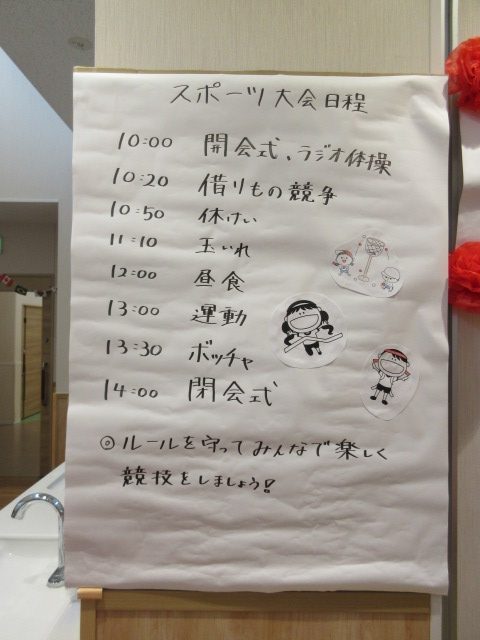 スポーツ大会日程
10:00 開会式、ラジオ体操
10:20 借りもの競争
10:50 休けい
11:10 玉いれ
12:00 昼食
13:00 運動
13:30 ボッチャ
14:00 閉会式
◎ルールを守ってみんなで楽しく
競技をしましょう!